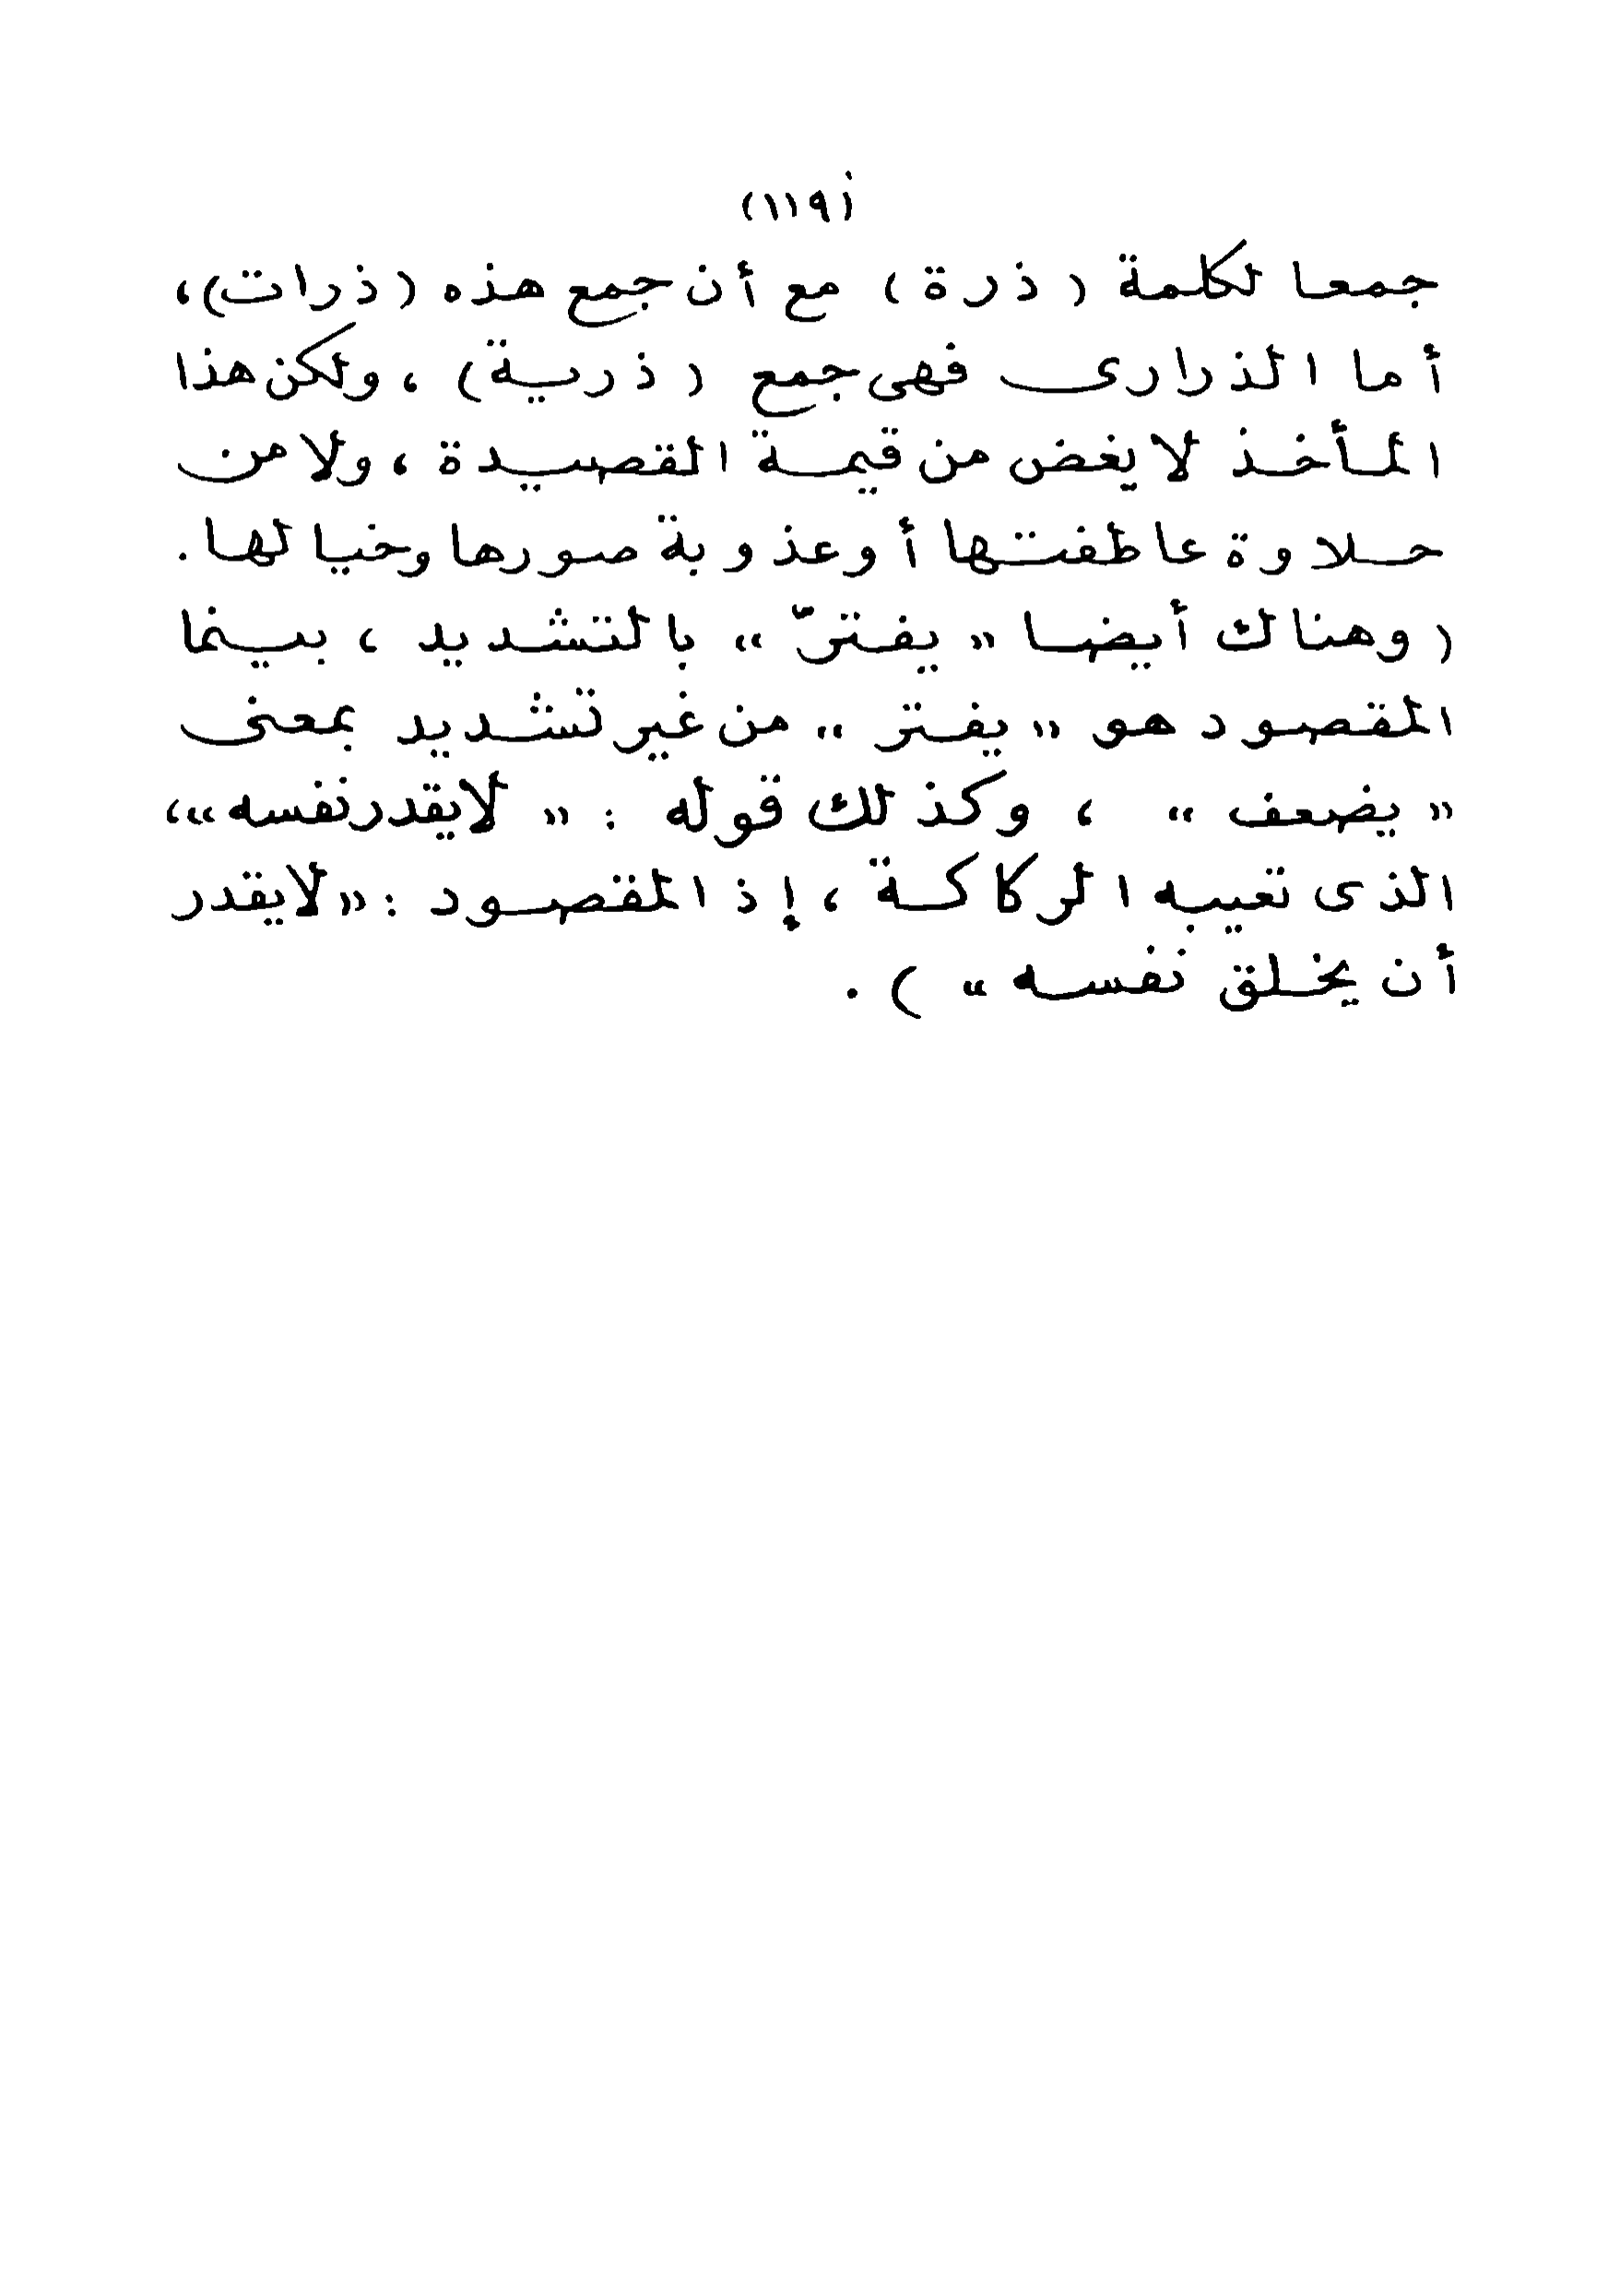 (١١٩)
جمعا لكلمة (ذرة) مع أن جمع هذه (ذرات)،
أما الذرارى فهى جمع (ذرية)، ولكن هذا
المأخذ لا يغض من قيمة القصيدة، ولا من
حلاوة عاطفتها أو عذوبة صورها وخيالها.
(وهناك أيضا «يفترّ» بالتشديد، بينما
المقصود هو «يفتر» من غير تشديد بمعنى
«يضعف»، وكذلك قوله: «لا يقدر نفسه»،
الذى تعيبه الركاكة، إذ المقصود: «لا يقدر
أن يخلق نفسه»).